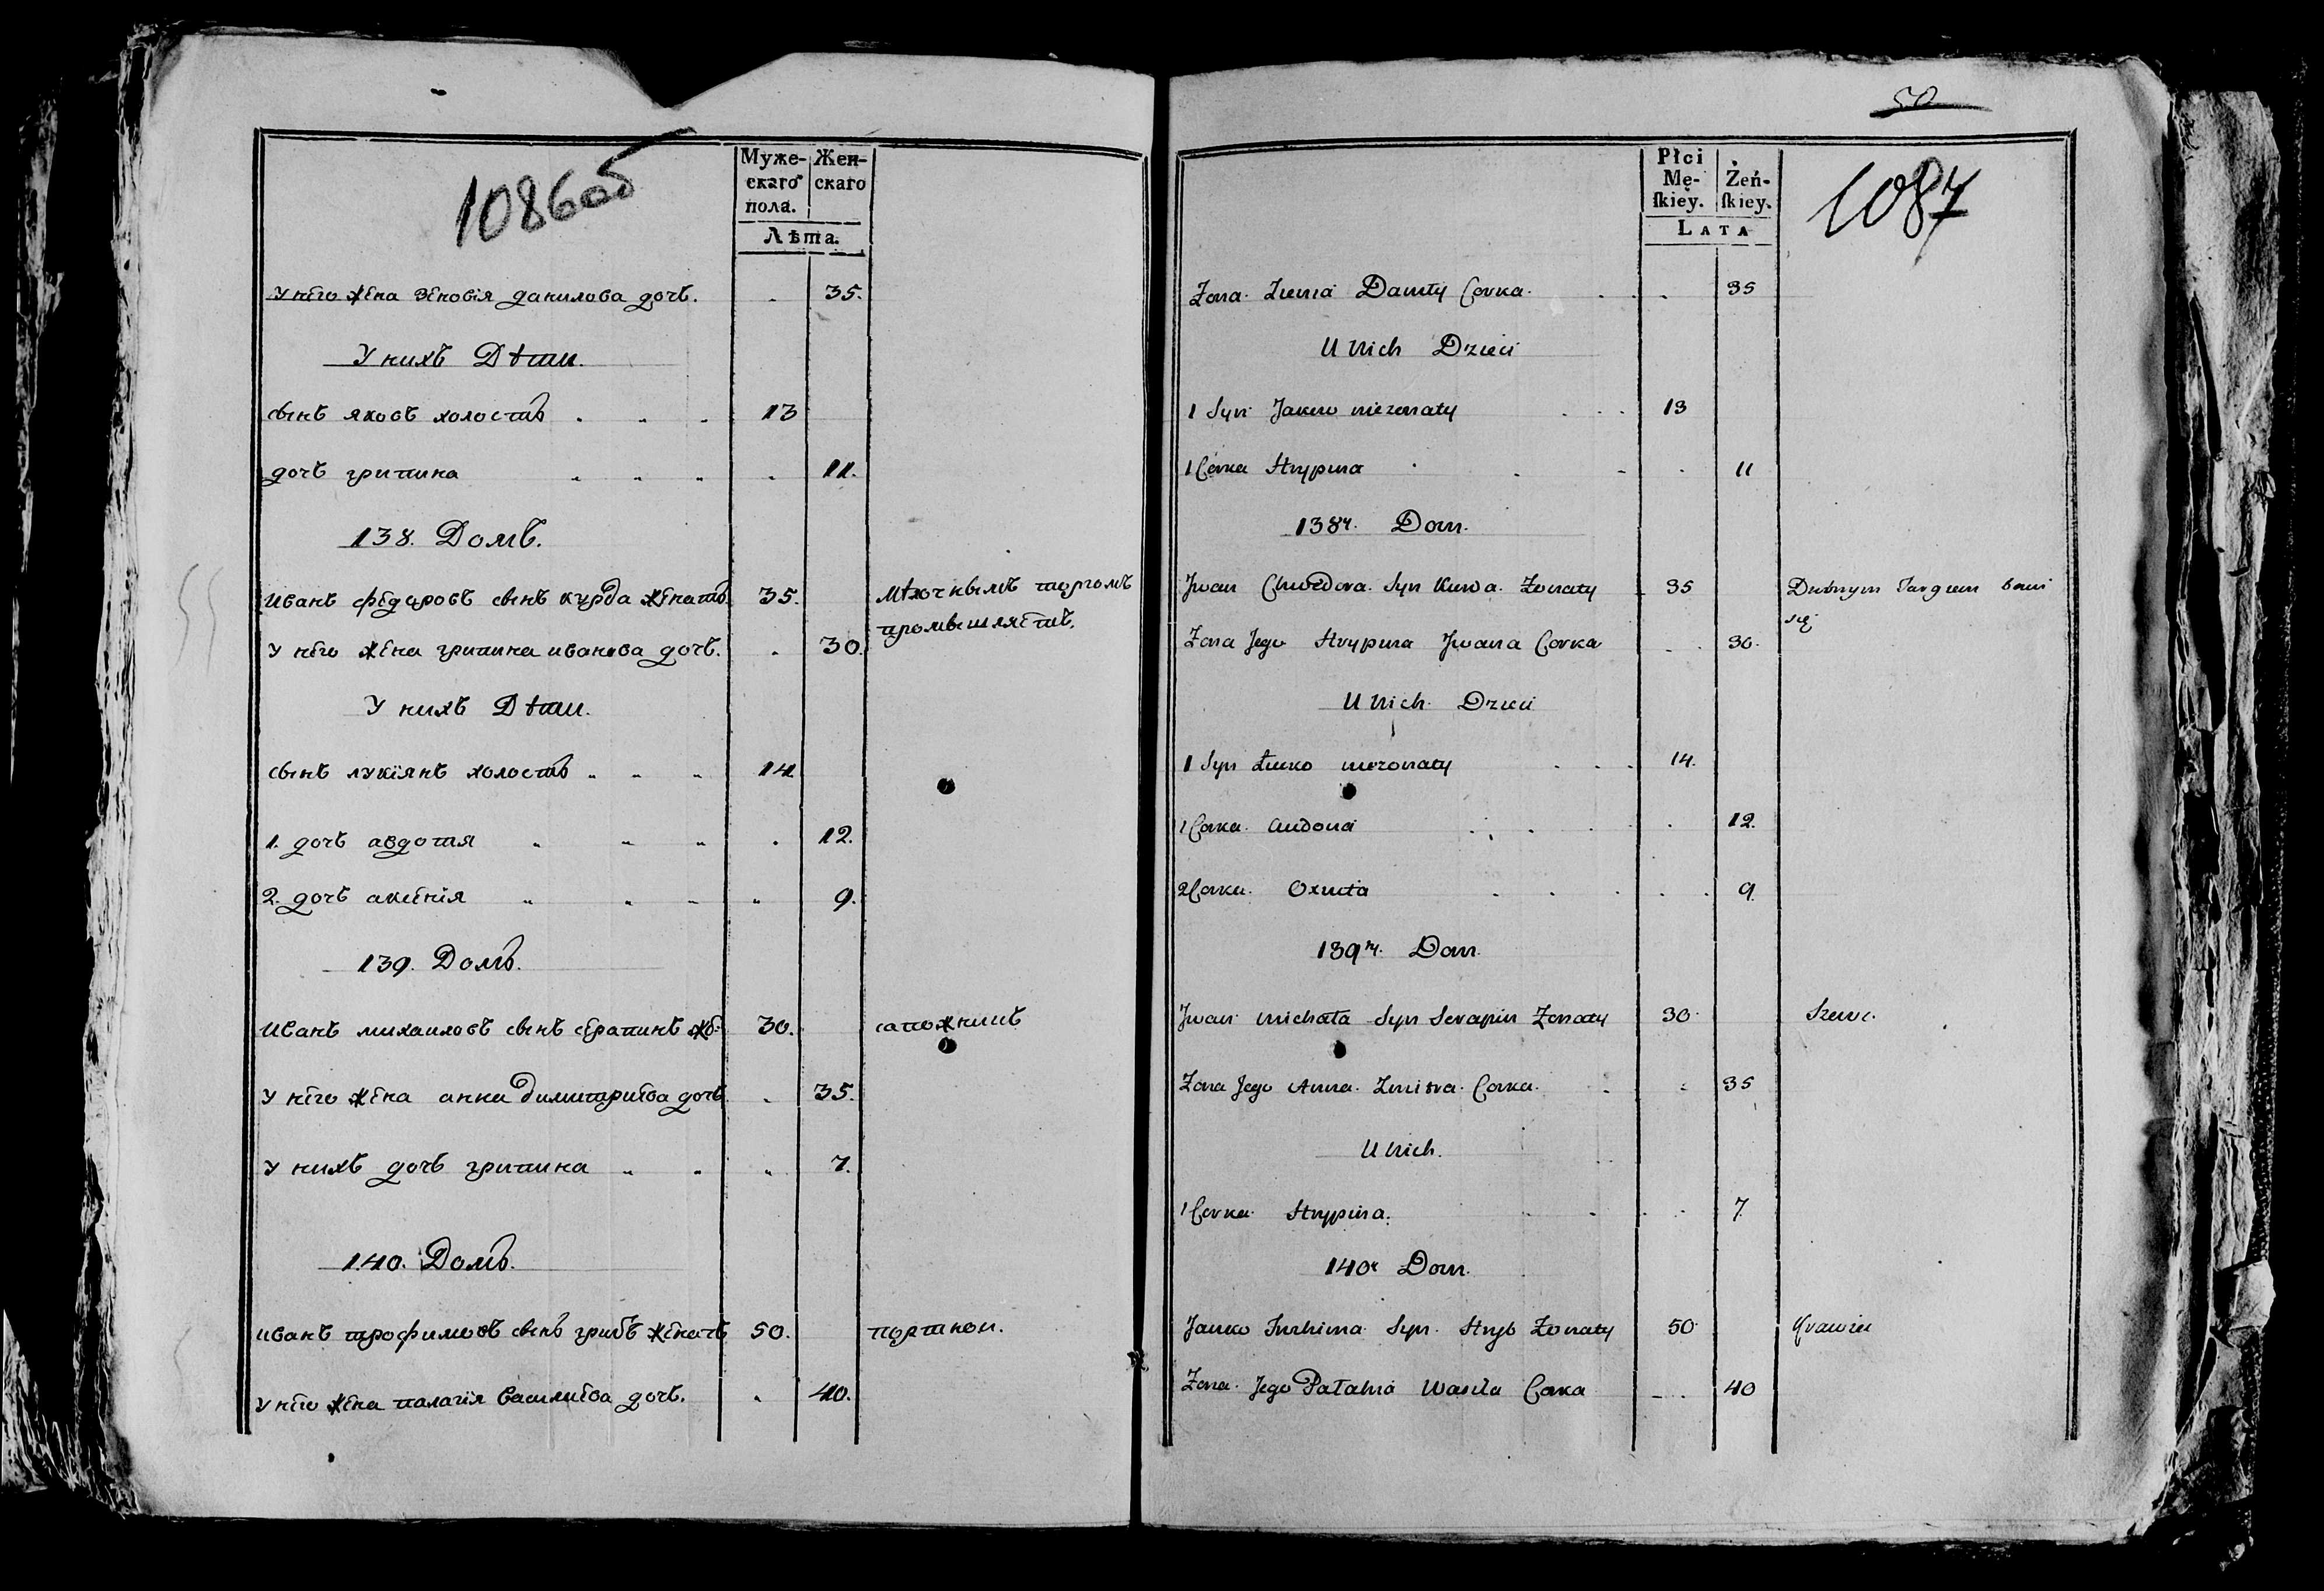 1086об
Муже-
скаго
пола.
Жен-
скаго
Лѣта.
У него жена зеновія данилова дочь. 35.
У нихъ Дѣти.
сынъ яковъ холостъ 13
дочь грипина 11.
138. Домъ.
Иванъ федоровъ сынъ курда женатъ 35. мѣлочнымъ торгомъ
промышляетъ.
У него жена грипина иванова дочь. 30.
У нихъ Дѣти.
сынъ лукіянъ холостъ 14
1. дочь авдотия 12.
2. дочь аксенія 9.
139. Домъ.
Иванъ михаиловъ сынъ серапинъ же: 30. сапожникъ
У него жена анна димитриева дочь. 35.
У нихъ дочь грипина 7.
140. Домъ.
иванъ трофимовъ сынъ грибъ женатъ 50. портнои.
У него жена палагія василиева дочь. 40.
50
1087
Płci
Mę-
ſkiey.
Żeń-
ſkiey.
LATA
Zona Daniły Corka 35
U nich Dzieci
1 Syn Jakow niezonaty 13
1 Corka Hrypina 11
138y. Dom.
Jwan Chwedora Syn Kurda Zonaty 35 Drobnym Targiem bawi
się
Zona Jego Hrypina Jwana Corka 30.
U nich Dzieci
1 Syn Łucko niezonaty 14.
1 Corka Audocia 12.
2 Corka Oxiuta 9.
139ty. Dom.
Jwan Michała Syn Serapin Zonaty 30 Szewc.
Zona Jego Anna Zmitra Corka. 35
U nich.
1 Corka Hrypina. 7
140y Dom.
Janko Syn Hryb Zonaty 50 Krawiec
Zona Jego Pałahia Wasila Corka 40